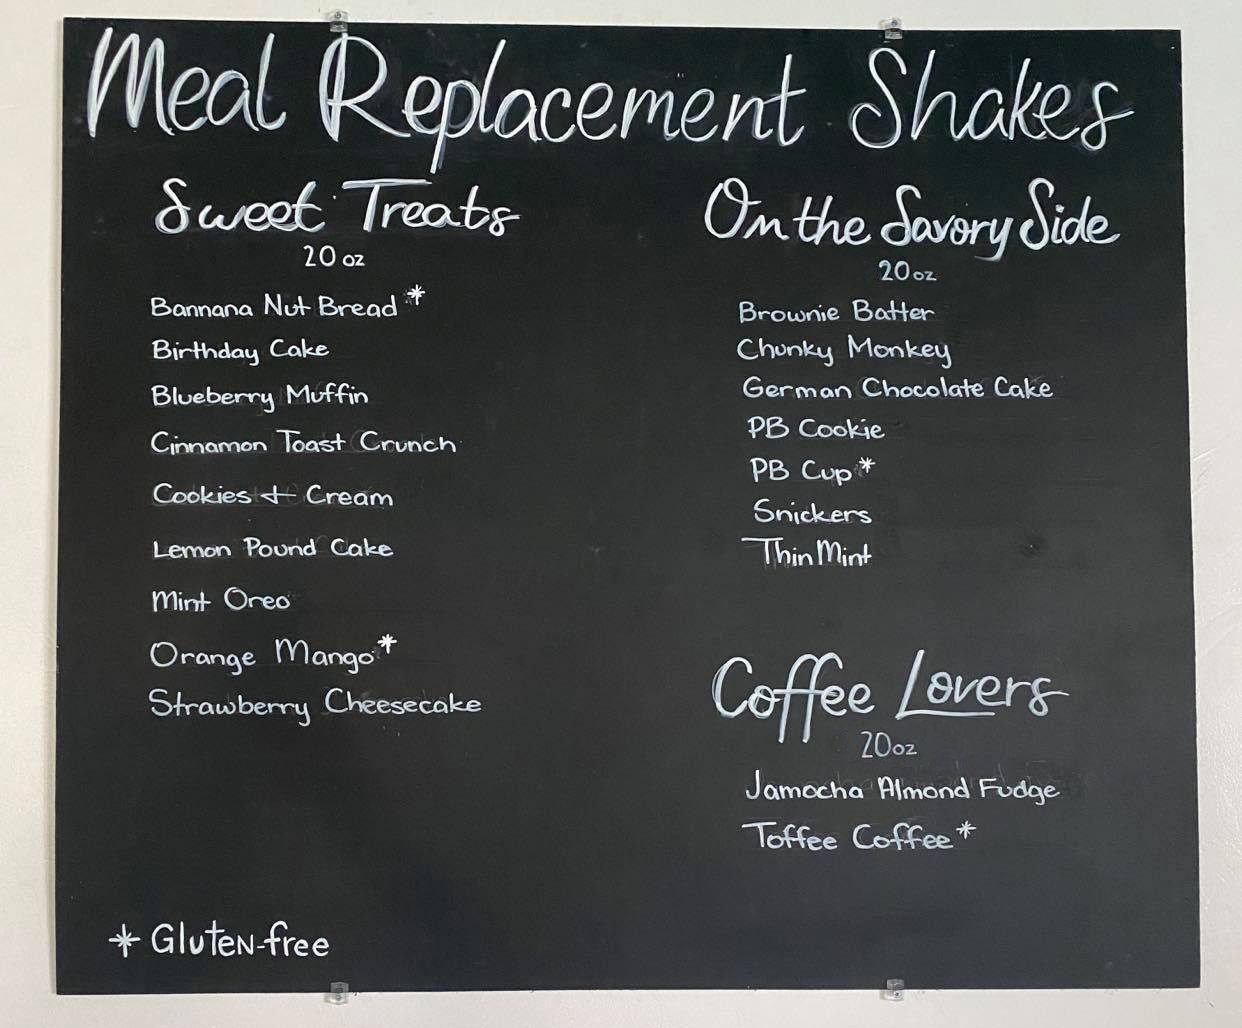 Meal Replacement Shakes
Sweet Treats
20 oz
Bannana Nut Bread *
Birthday Cake
Blueberry Muffin
Cinnamon Toast Crunch
Cookies + Cream
Lemon Pound Cake
Mint Oreo
Orange Mango *
Strawberry Cheesecake
On the Savory Side
20 oz
Brownie Batter
Chunky Monkey
German Chocolate Cake
PB Cookie
PB Cup *
Snickers
Thin Mint
Coffee Lovers
20 oz
Jamocha Almond Fudge
Toffee Coffee *
* Gluten-free